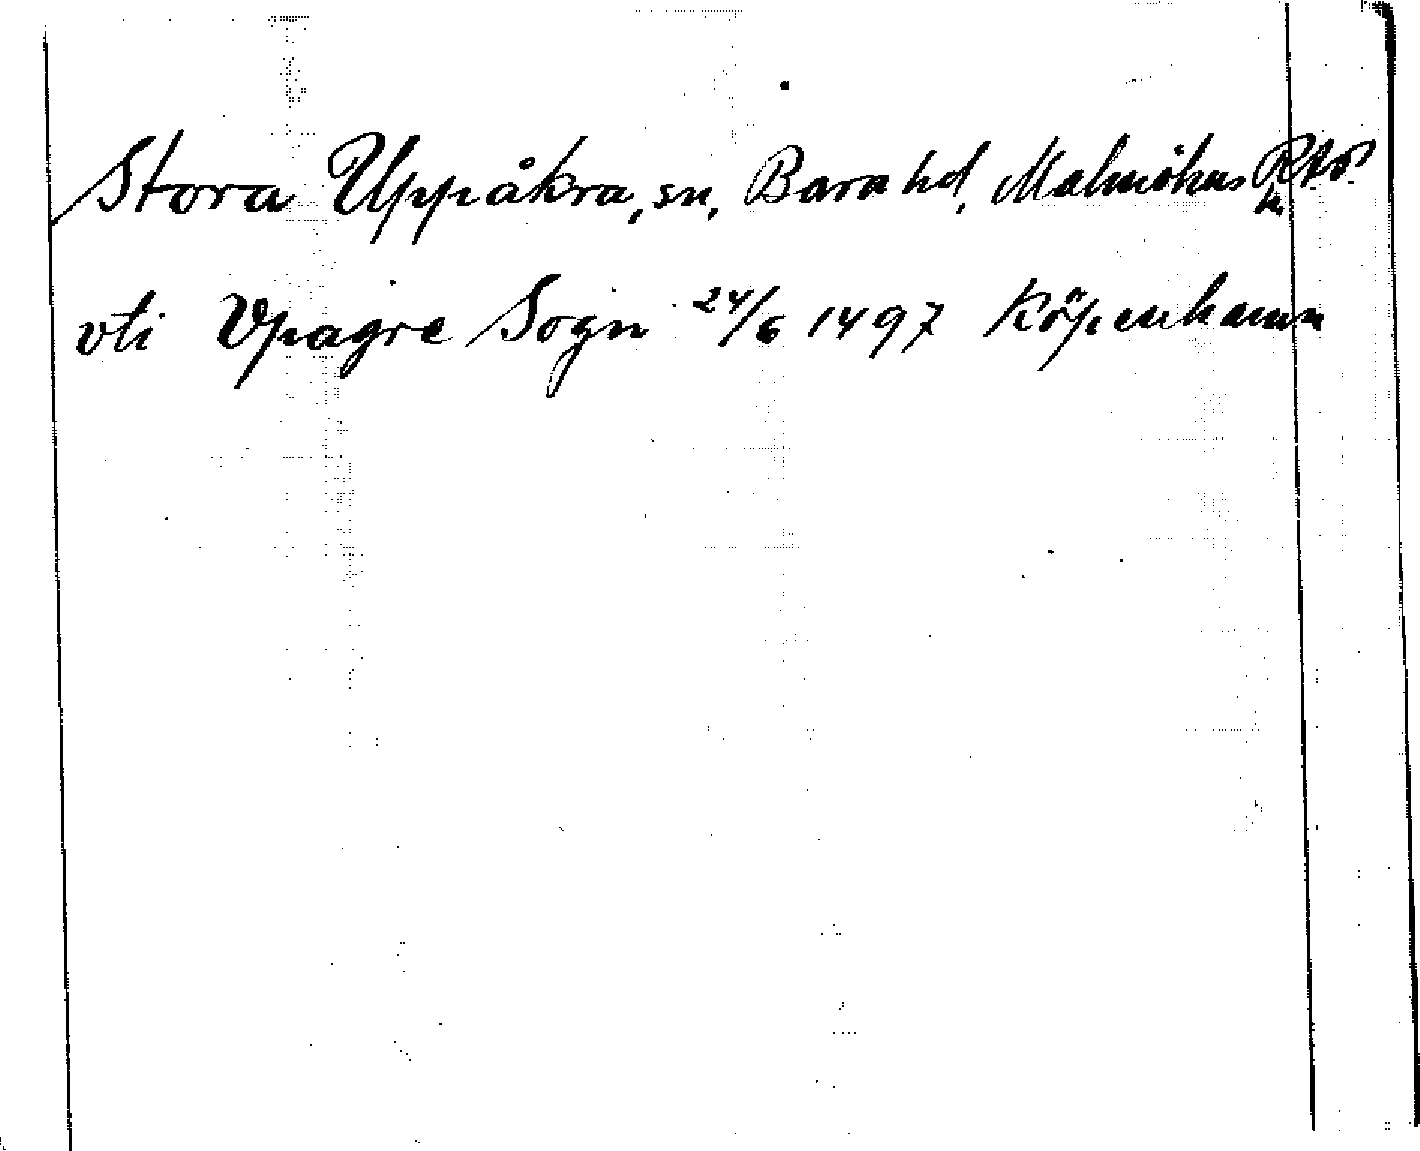 Stora Uppåkra, sn, Bara hd, Malmöhus
vti Vpagre Sogn 24/6 1497 Köpenhamn